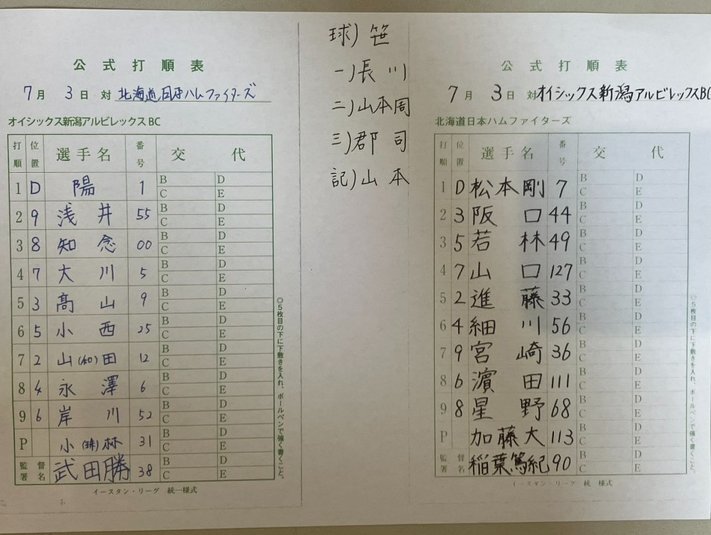 公式打順表
7月 3日 対 北海道日本ハムファイターズ
オイシックス新潟アルビレックスBC
打順 位置 選手名 番号 交代
1 D 陽 1 B C D E
2 9 浅井 55 B C D E
3 8 知念 00 B C D E
4 7 大川 5 B C D E
5 3 高山 9 B C D E
6 5 小西 25 B C D E
7 2 山(和)田 12 B C D E
8 4 永澤 6 B C D E
9 6 岸川 52 B C D E
P 小(珠)林 31 B C D E
監督署名 武田勝 38 B C D E
イースタン・リーグ 統一様式
◎5枚目の下に下敷きを入れ、ボールペンで強く書くこと。
球)笹
一)長川
二)山本周
三)郡司
記)山本
公式打順表
7月 3日 対 オイシックス新潟アルビレックスBC
北海道日本ハムファイターズ
打順 位置 選手名 番号 交代
1 D 松本剛 7 B C D E
2 3 阪口 44 B C D E
3 5 若林 49 B C D E
4 7 山口 127 B C D E
5 2 進藤 33 B C D E
6 4 細川 56 B C D E
7 9 宮崎 36 B C D E
8 6 濵田 111 B C D E
9 8 星野 68 B C D E
P 加藤大 113 B C D E
監督署名 稲葉篤紀 90 B C D E
イースタン・リーグ 統一様式
◎5枚目の下に下敷きを入れ、ボールペンで強く書くこと。